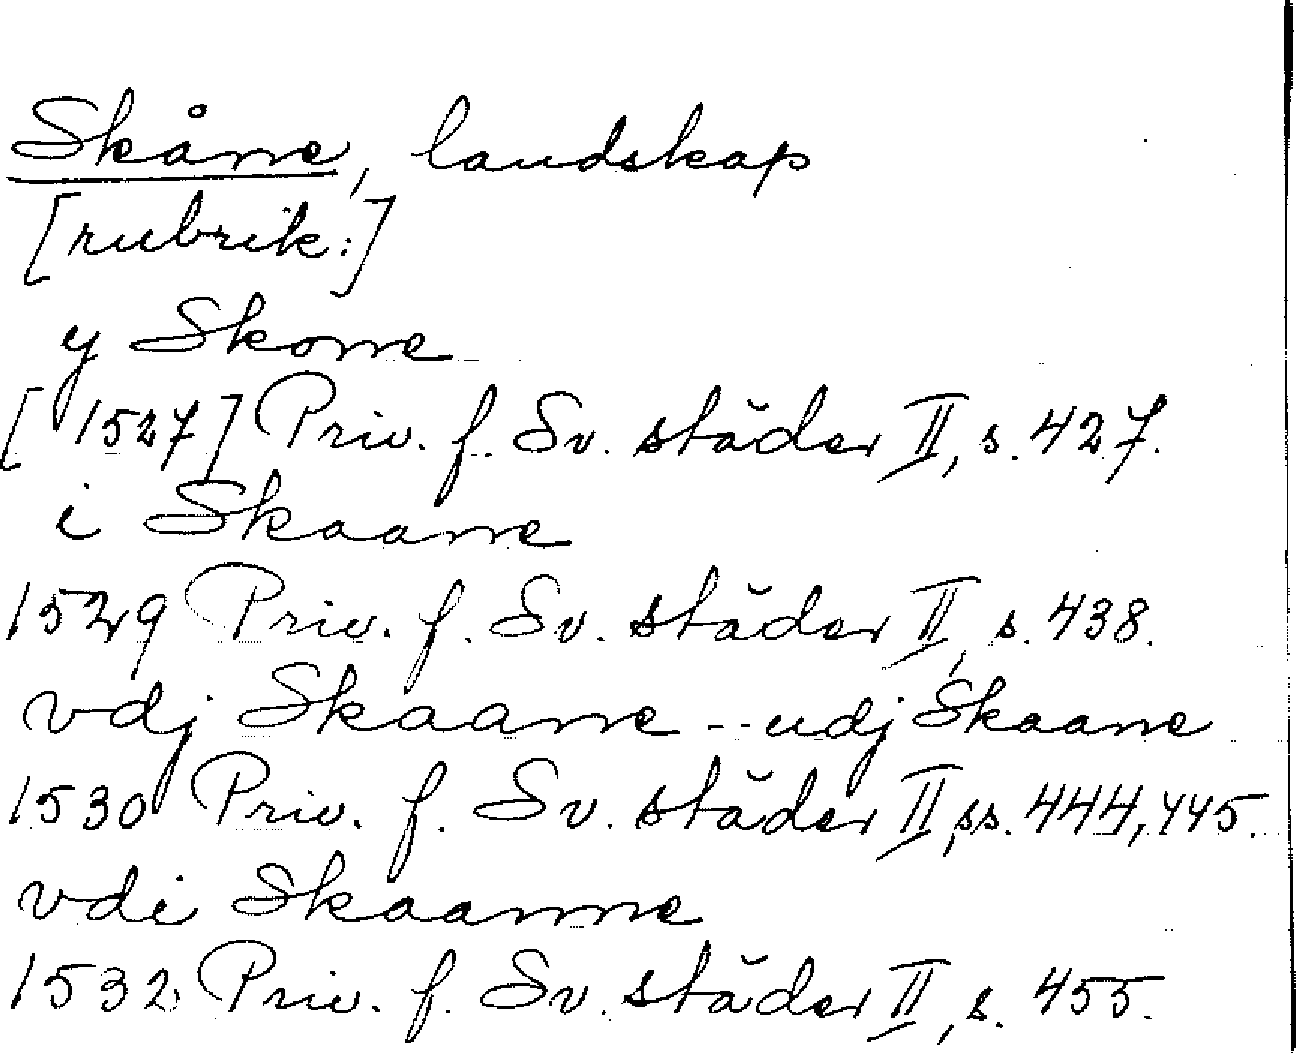 Skåne, landskap
[rubrik:]
y Skone
[1527] Priv. f. Sv. städer II, s. 427.
i Skaane
1529 Priv. f. Sv. städer II, s. 438.
vdj Skaane -- udj Skaane
1530 Priv. f. Sv. städer II, ss. 444, 445.
vdi Skaanne
1532 Priv. f. Sv. städer II, s. 455.